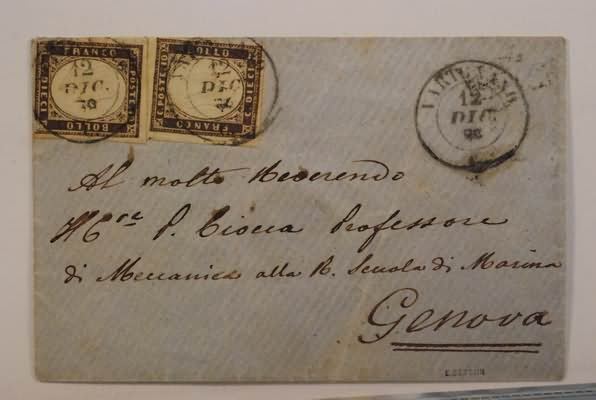 FRANCO
POSTE
BOLLO
C. DIECI
12
DIC.
BOLLO
C. DIECI
FRANCO
C. POSTE
12
DIC
12
DIC
Al molto Reverendo
P. Ciocca Professore
di Meccanica alla R. Scuola di Marina
Genova